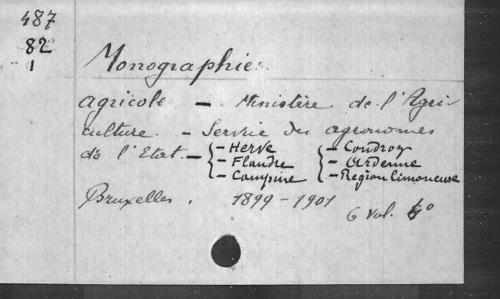 487
82
1
Monographie
agricole — Ministère de l'Agri
culture. — Service des agronomes
de l'Etat. — { — Herve { — Condroz
— Flandre — Ardenne
— Campine — Region limoneuse
Bruxelles. 1899-1901
6 vol. 4°